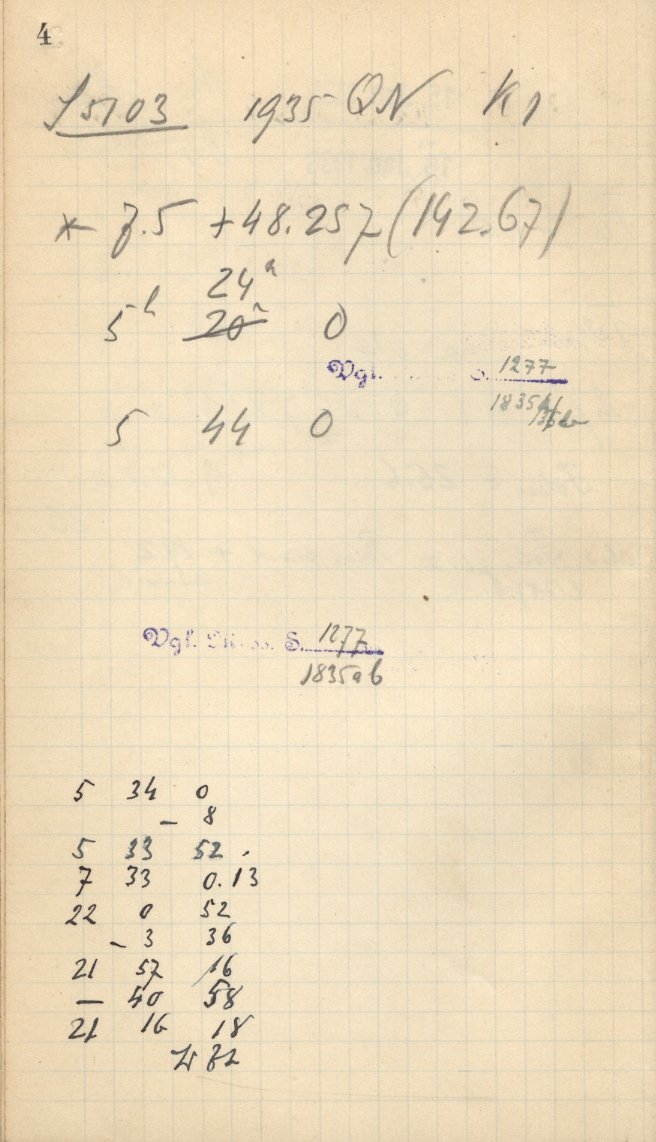 4
1935 QN K1
* 7.5 +48.257 (142.67)
24
5h 20 0
Vgl. S. 1277
5 44 0
Vgl. S. 1277
1835ab
5 34 0
- 8
5 33 52
7 33 0.13
22 0 52
- 3 36
21 57 16
- 40 58
21 16 18